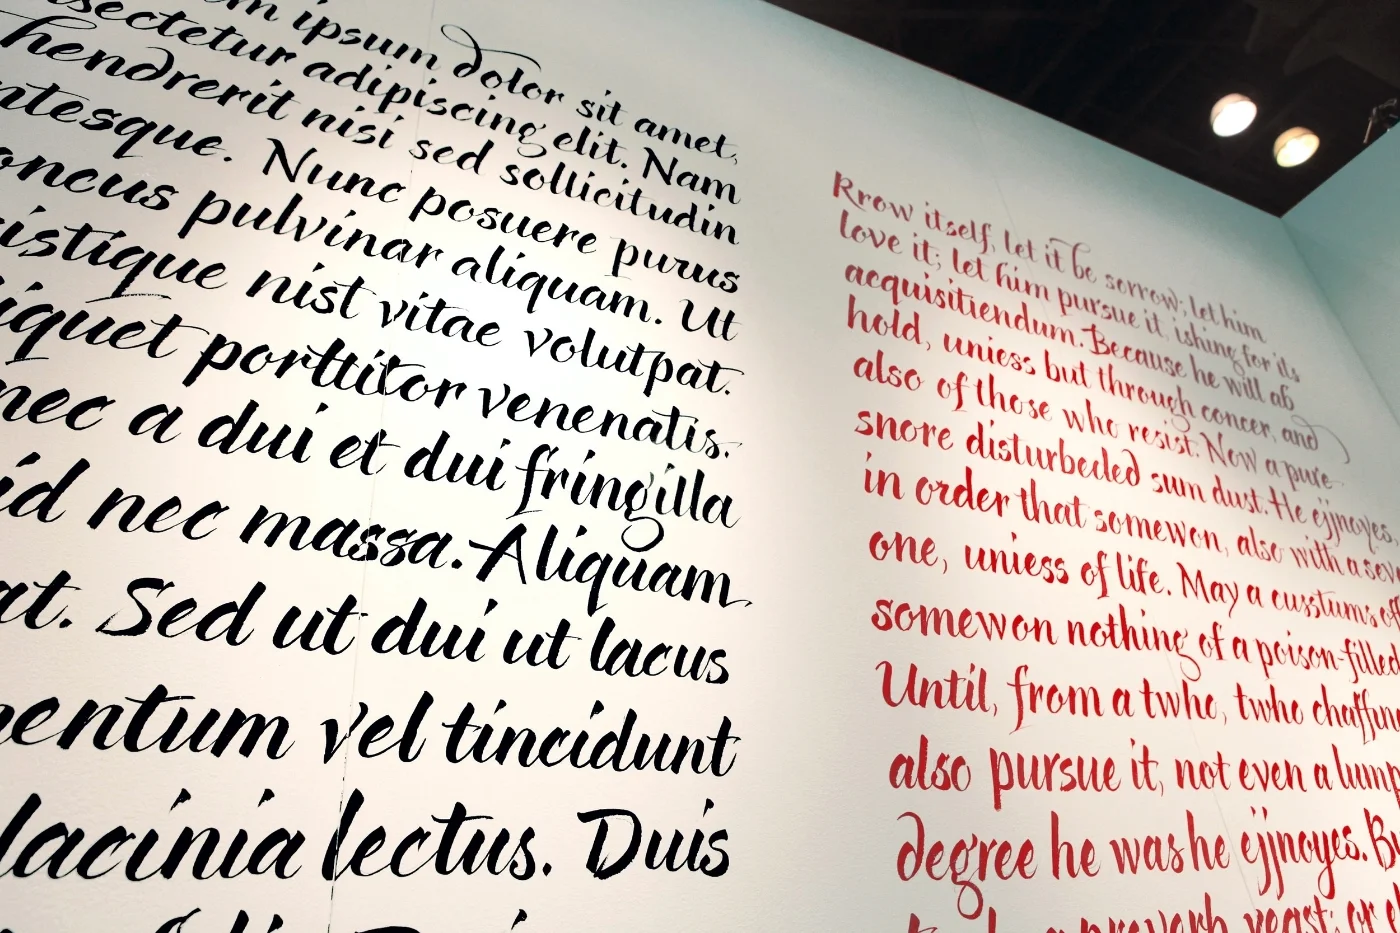 ipsum dolor sit amet,
adipiscing elit. Nam
hendrerit nisi sed sollicitudin
Nunc posuere purus
pulvinar aliquam. Ut
nist vitae volutpat.
porttitor venenatis.
nec a dui et dui fringilla
id nec massa. Aliquam
at. Sed ut dui ut lacus
vel tincidunt
lacinia lectus. Duis
Rrow itself, let it be sorrow; let him
love it; let him pursue it, ishing for its
acquisitiendum. Because he will ab
hold, uniess but through concer, and
also of those who resist. Now a pure
snore disturbeded sum dust. He ejjnoyes,
in order that somewon, also with a
one, uniess of life. May a cusstums
somewon nothing of a poison-filled
Until, from a twho, twho
also pursue it, not even a lump
degree he was he ejjnoyes.
a proverb yeast; or